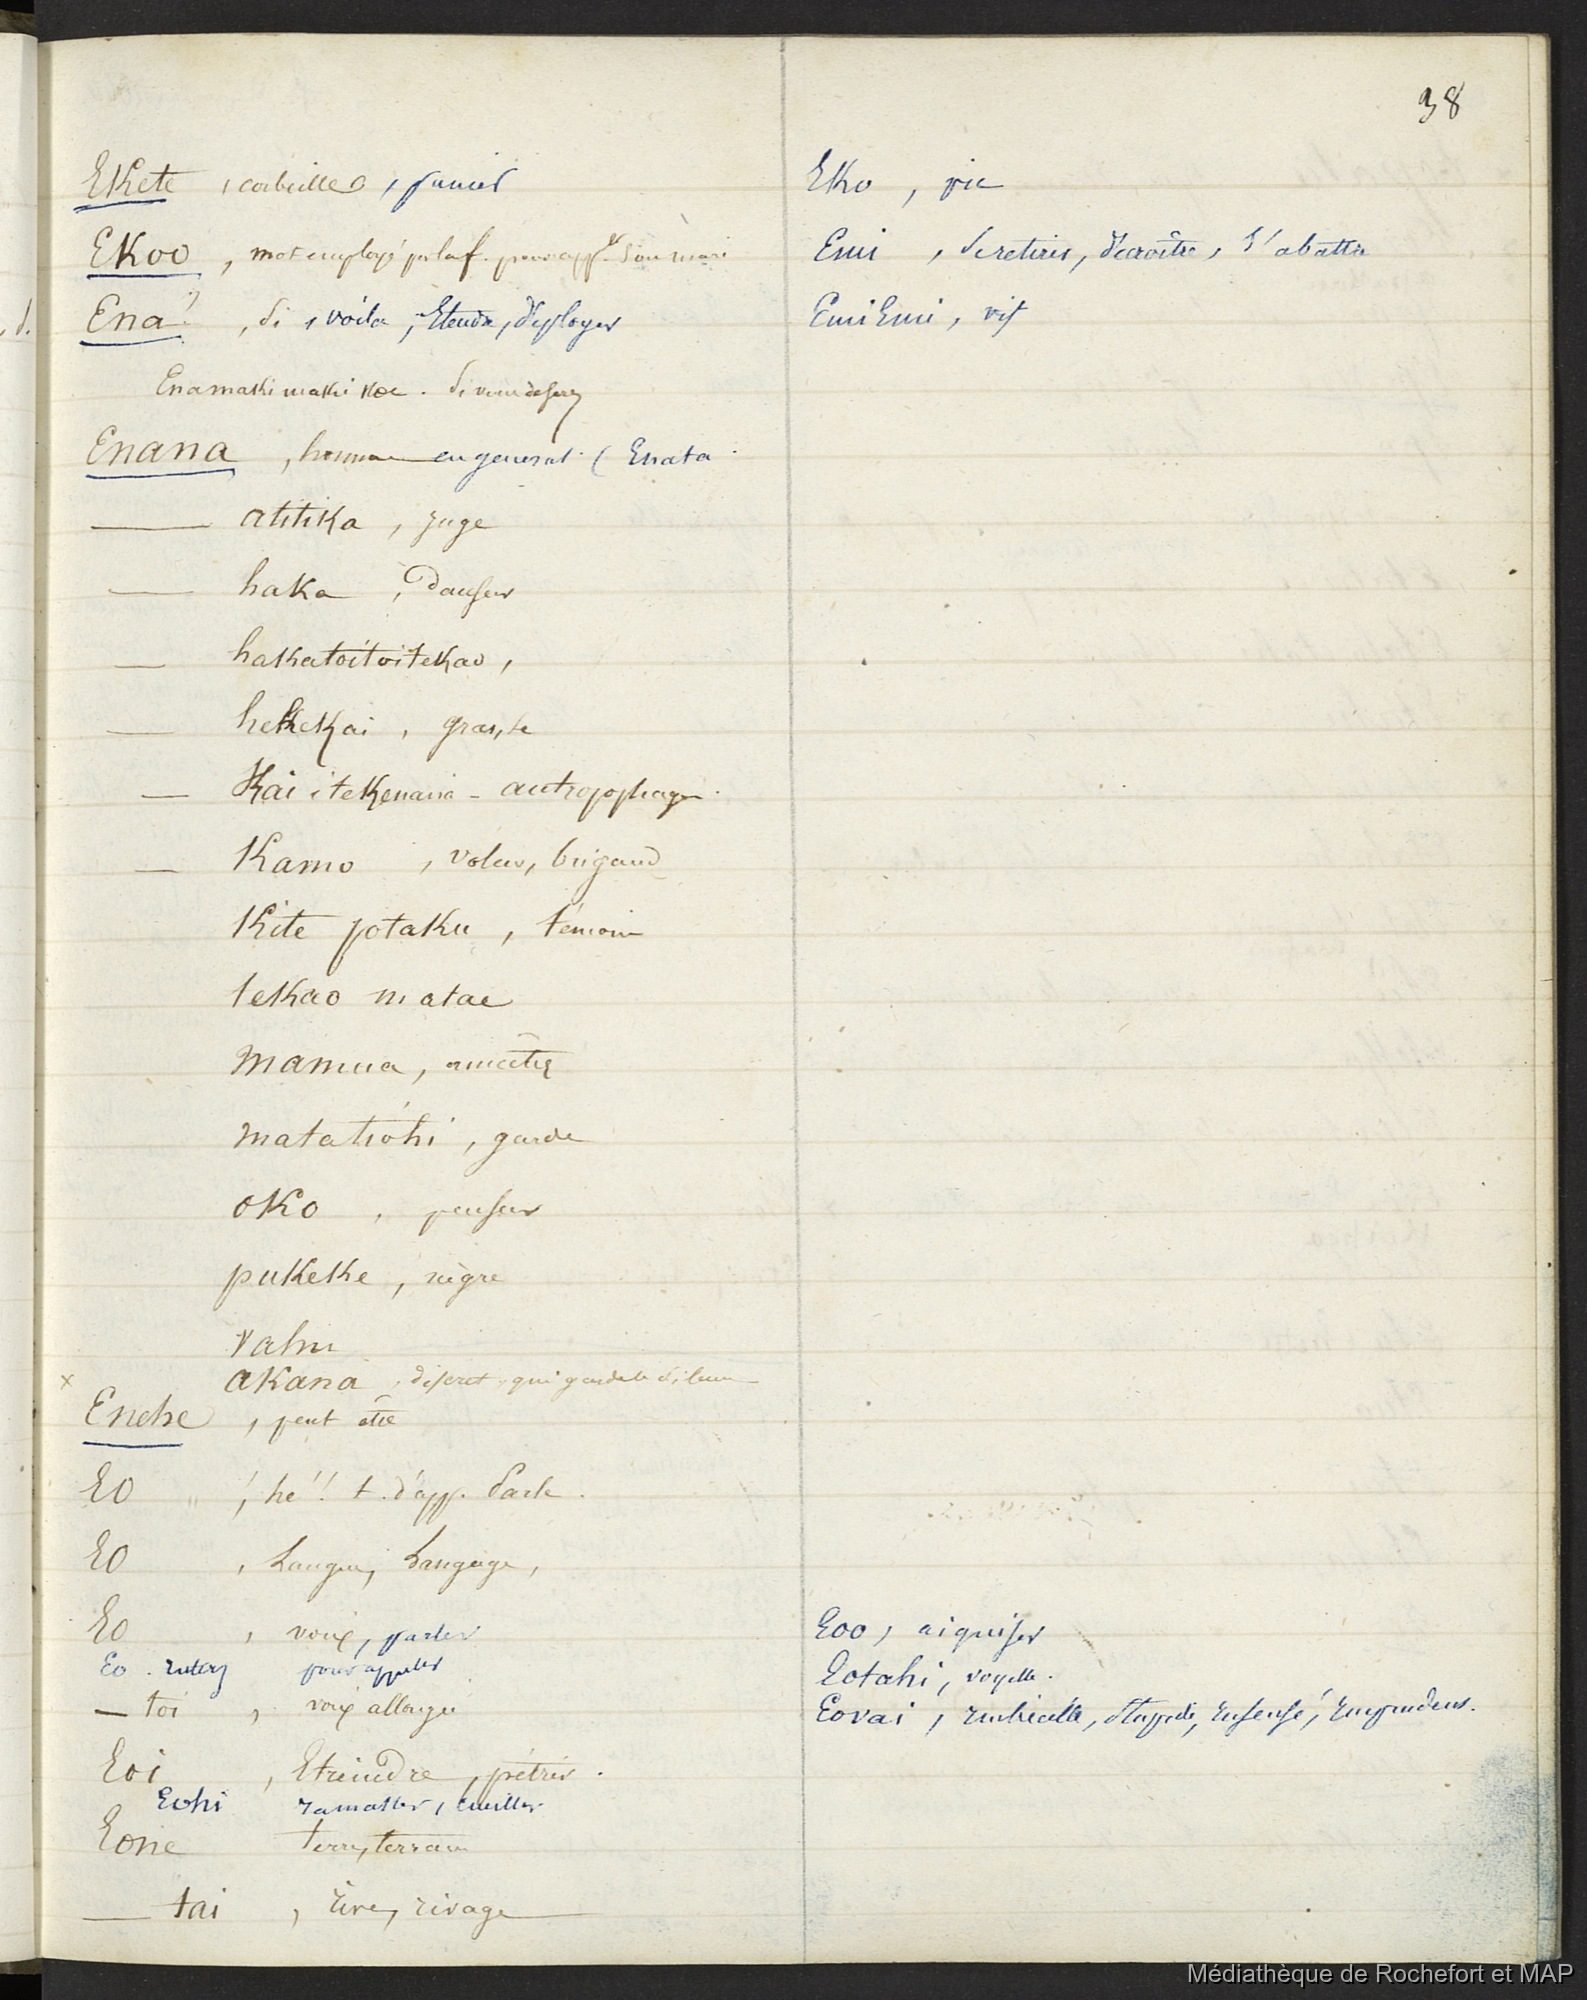 38
EKete, corbeille, panier
EKoo, mot employé par la f. pour app.er Son mari
Ena!, si, voila, Etendre, déployer
Enamakimaki koe. Si vous desirez
Enana, homme en general. ( Enata.
— atitika, juge
— haka, Danseur
— hakatoitoitekao,
— hekekai, graviste
— Kai itekenana - antropophage.
— Kamo, voleur, brigand
Kite potaku, témoin
tekao matae
mamua, ancêtre
matatiohi, garde
oko, penseur
pukeke, nègre
vahu
akana, discret, qui garde le silence
x Enehe, peut être
EO, hé!! t. d'app. Parle.
EO, Langue, Langage,
Eo, voix, parler
Eo. pour appeler
— toi, voix allongée
Eoi, Etreindre, pétrir.
Eohi ramasser, cueillir
Eone terre, terrain
— tai, rive, rivage
Eko, pic
Emi, se retirer, décroître, s'abattre
EmiEmi, vif
Eoo, aiguiser
Eotahi, voyelle.
Eovai, imbécille, stupide, insensé, imprudent.
, d.
Médiathèque de Rochefort et MAP